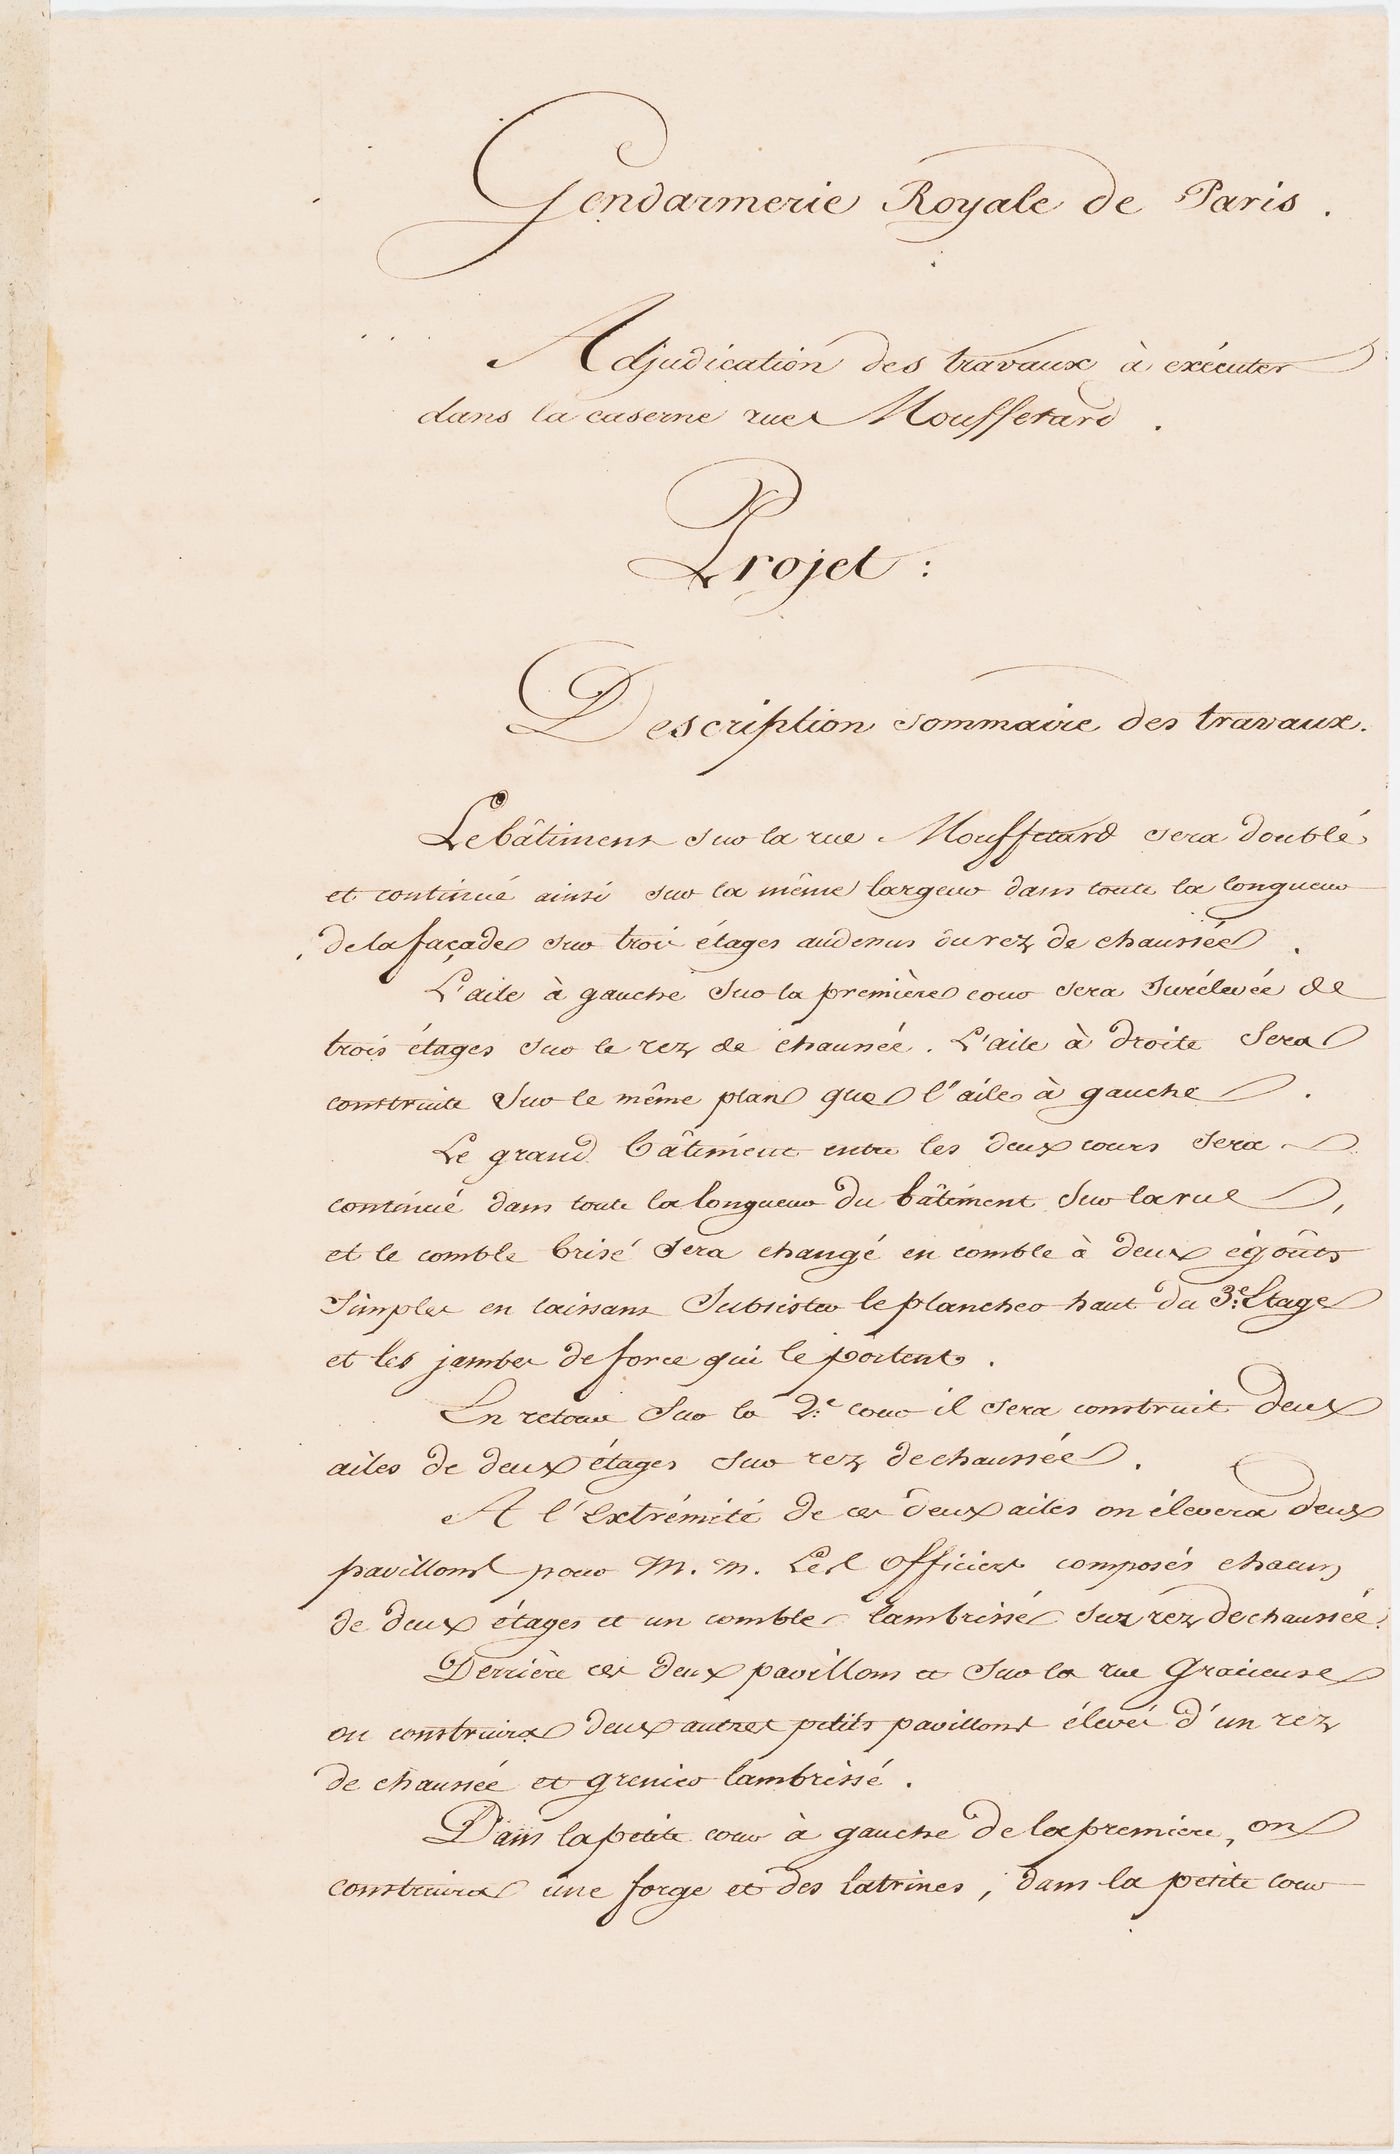 Gendarmerie Royale de Paris.
Adjudication des travaux à exécuter
dans la caserne rue Mouffetard.
Projet :
Description sommaire des travaux.
Le bâtiment sur la rue Mouffetard sera doublé
et continué ainsi sur la même largeur dans toute la longueur
de la façade sur trois étages audessus du rez de chaussée.
L'aile à gauche sur la première cour sera surélevée de
trois étages sur le rez de chaussée. L'aile à droite sera
construite sur le même plan que l'aile à gauche.
Le grand bâtiment entre les deux cours sera
continué dans toute la longueur du bâtiment sur la rue,
et le comble brisé sera changé en comble à deux égoûts
simples en laissant subsister le plancher haut du 3e. Etage
et les jambes de force qui le portent.
En retour sur la 2e. cour il sera construit deux
ailes de deux étages sur rez de chaussée.
A l'extrémité de ces deux ailes on élevera deux
pavillons pour M. M. Les officiers composés chacun
de deux étages et un comble lambrissé sur rez de chaussée.
Derrière ces deux pavillons et sur la rue Gracieuse
on construira deux autres petits pavillons élevés d'un rez
de chaussée et grenier lambrissé.
Dans la petite cour à gauche de la premiere, on
construira une forge et des latrines, dans la petite cour